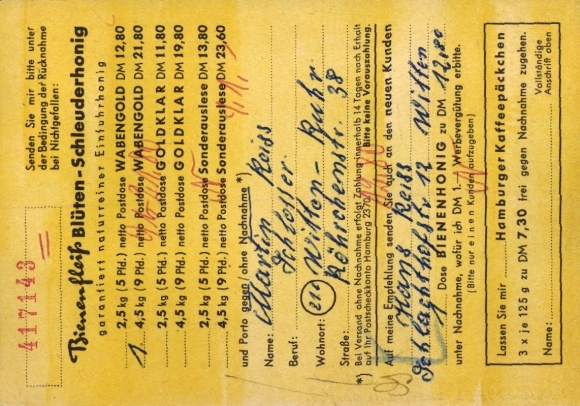 417143
Senden Sie mir bitte unter
der Bedingung der Rücknahme
bei Nichtgefallen:
Bienenfleiß Blüten-Schleuderhonig
garantiert naturreiner Einfuhrhonig
2,5 kg (5 Pfd.) netto Postdose WABENGOLD DM 12,80
1 4,5 kg (9 Pfd.) netto Postdose WABENGOLD DM 21,80
2,5 kg (5 Pfd.) netto Postdose GOLDKLAR DM 11,80
4,5 kg (9 Pfd.) netto Postdose GOLDKLAR DM 19,80
2,5 kg (5 Pfd.) netto Postdose Sonderauslese DM 13,80
4,5 kg (9 Pfd.) netto Postdose Sonderauslese DM 23,60
und Porto gegen/ohne Nachnahme *)
Name: Martin Reiss
Beruf: Schlosser
Wohnort: Witten-Ruhr
Straße: Röhrchenstr. 38
*) Bei Versand ohne Nachnahme erfolgt Zahlung innerhalb 14 Tagen nach Erhalt
auf Ihr Postscheckkonto Hamburg Bitte keine Vorauszahlung.
Auf meine Empfehlung senden Sie auch an den neuen Kunden
Hans Reiss
Schlachthofstr. 12 Witten
1 Dose BIENENHONIG zu DM 12,80
unter Nachnahme, wofür ich DM 1.- Werbevergütung erbitte.
(Bitte nur einen Kunden aufzugeben)
Hamburger Kaffeepäckchen
Lassen Sie mir
3 x je 125 g zu DM 7,30 frei gegen Nachnahme zugehen.
Name:
Vollständige
Anschrift oben